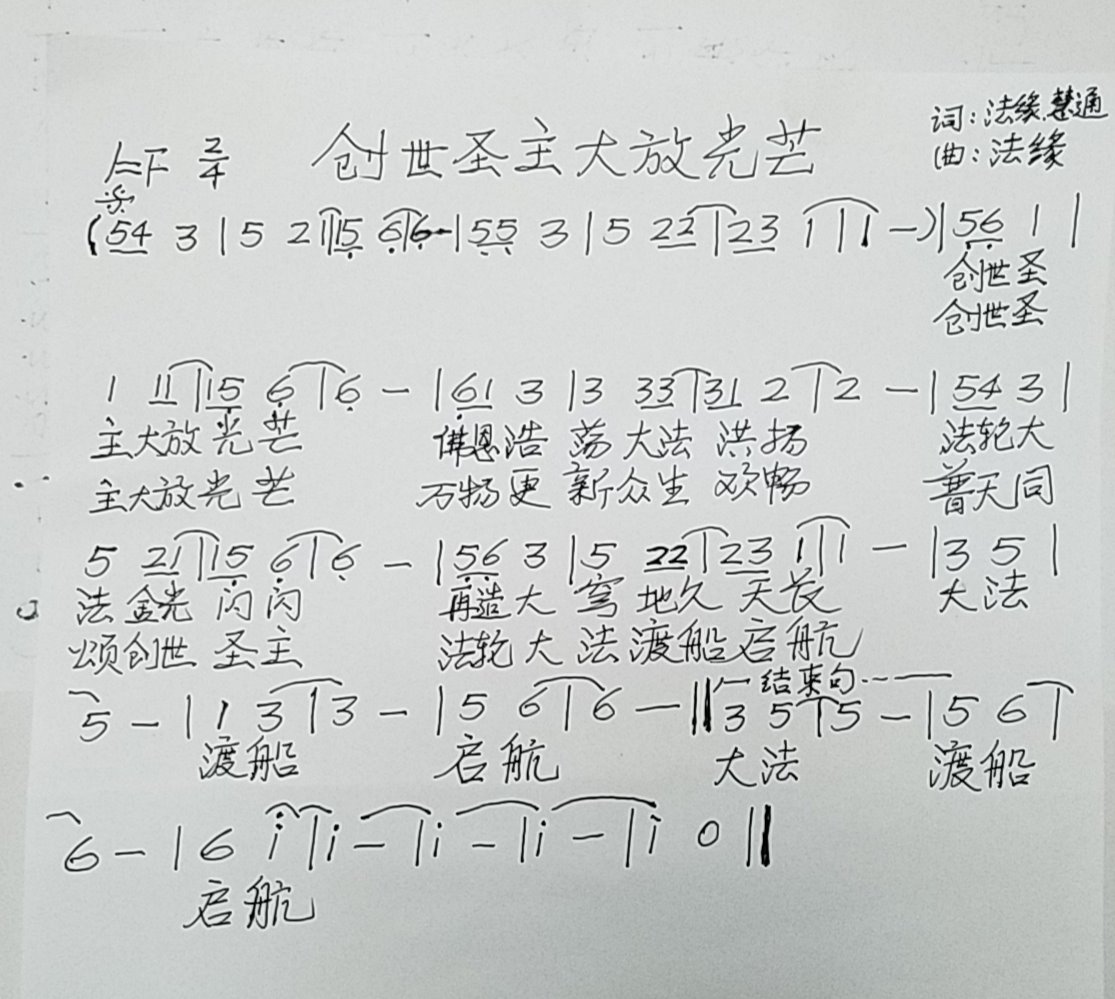 创世圣主大放光芒
词:法缘.慧通
曲:法缘
1=F 2/4
(54 3 | 5 21 | 15 6 | 6 - | 55 3 | 5 22 | 23 1 | 1 -) | 56 1 |
创世圣
创世圣
1 11 | 15 6 | 6 - | 61 3 | 3 33 | 31 2 | 2 - | 54 3 |
主大放光芒 佛恩浩荡大法洪扬 法轮大
主大放光芒 万物更新众生欢畅 普天同
5 21 | 15 6 | 6 - | 56 3 | 5 22 | 23 1 | 1 - | 3 5 |
法金光闪闪 再造大穹地久天长 大法
颂创世圣主 法轮大法渡船启航
5 - | 1 3 | 3 - | 5 6 | 6 - || 结束句 3 5 | 5 - | 5 6 |
渡船 启航 大法 渡船
6 - | 6 i | i - | i - | i - | i 0 ||
启航